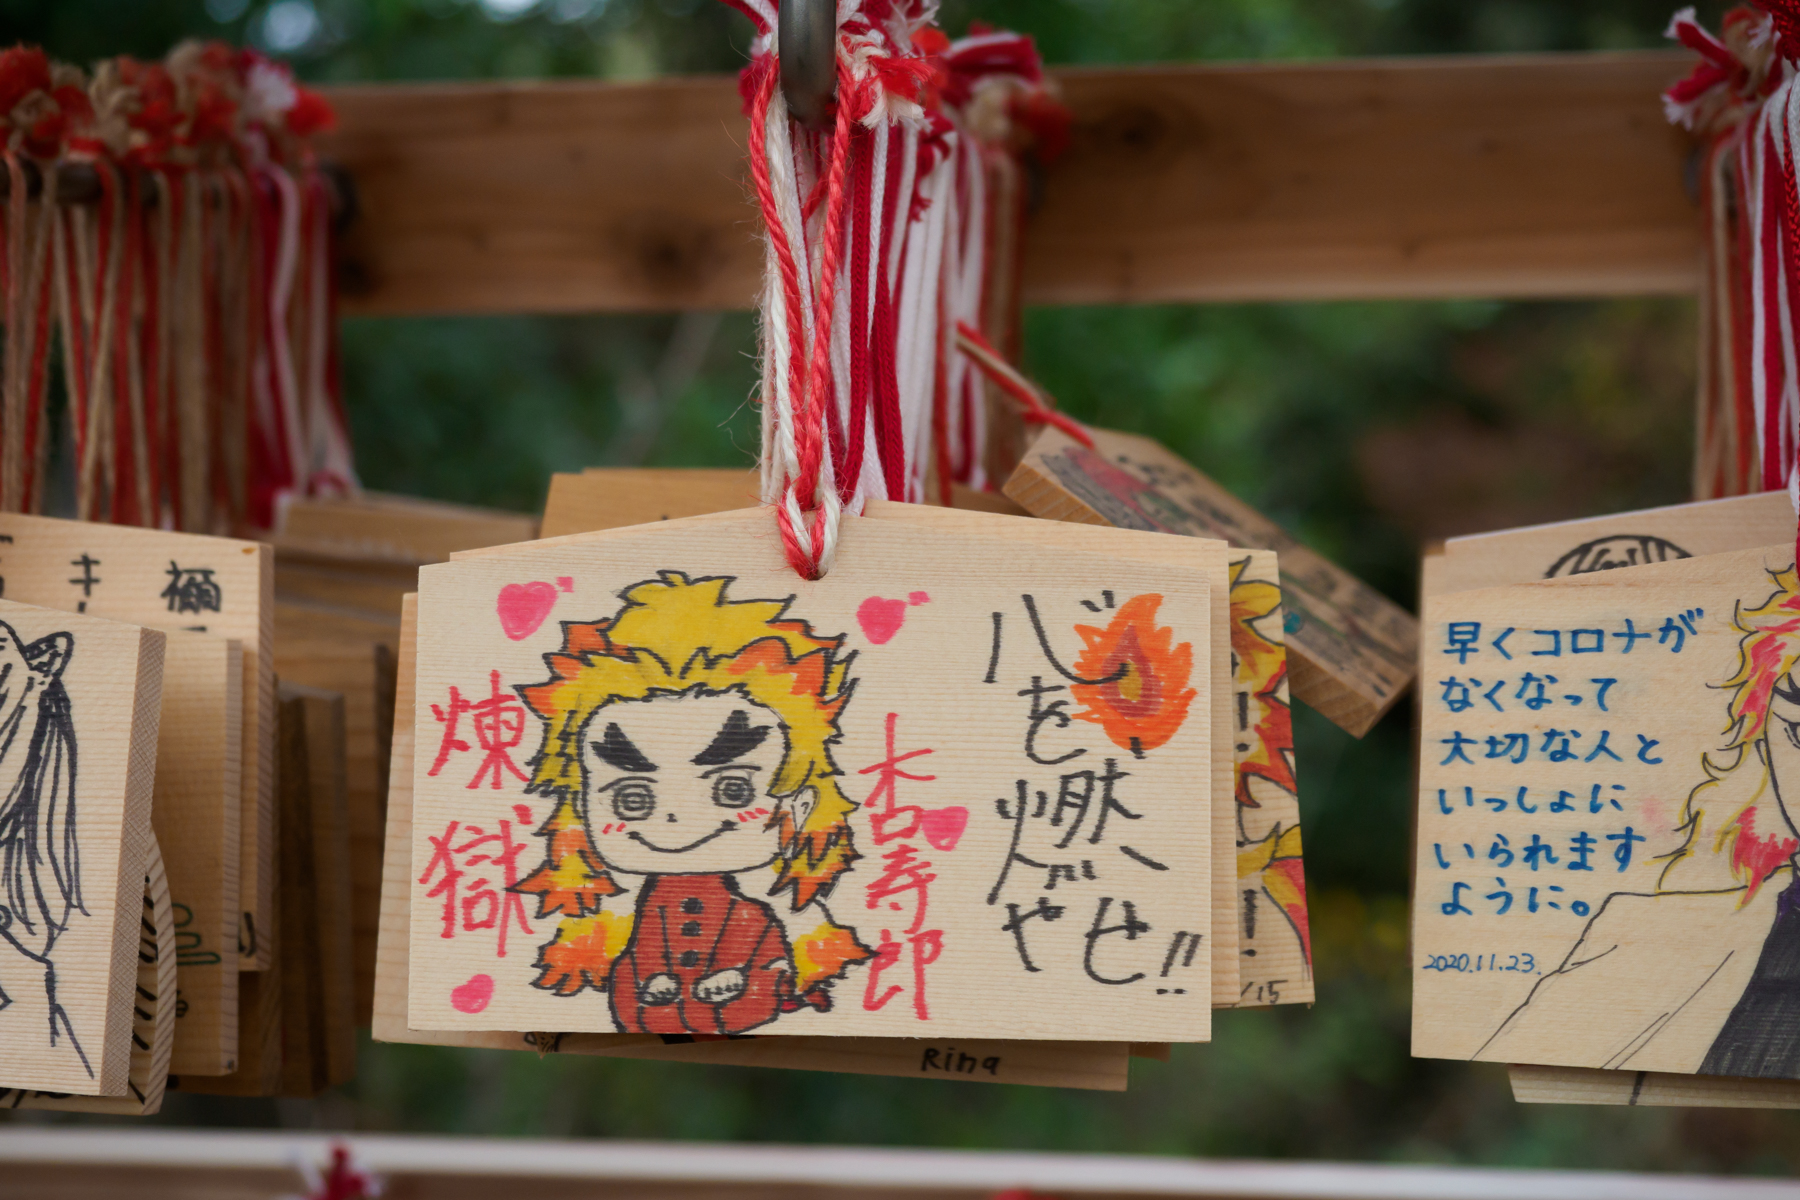 禰
キ
煉獄
杏寿郎
心を燃やせ!!
Rina
/15
早くコロナが
なくなって
大切な人と
いっしょに
いられます
ように。
2020.11.23.